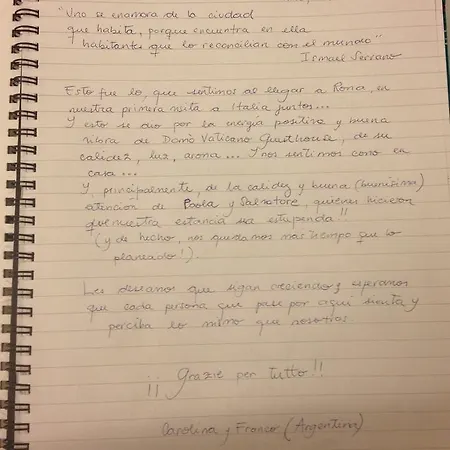 "Uno se enamora de la ciudad
que habita, porque encuentra en ella
habitantes que lo reconcilian con el mundo"
Ismael Serrano
Esto fue lo que sentimos al llegar a Roma, en
nuestra primera visita a Italia juntos...
Y esto se dio por la energía positiva y buena
vibra de Domò Vaticano Guesthouse, de su
calidez, luz, aroma... Y nos sentimos como en
casa...
Y principalmente, de la calidez y buena (buenísima)
atención de Paola y Salvatore, quienes hicieron
que nuestra estancia sea estupenda!!
(y de hecho, nos quedamos más tiempo que lo
planeado!).
Les deseamos que sigan creciendo y esperamos
que cada persona que pase por aquí sienta y
perciba lo mismo que nosotros.
¡¡ Grazie per tutto!!
Carolina y Franco (Argentina)